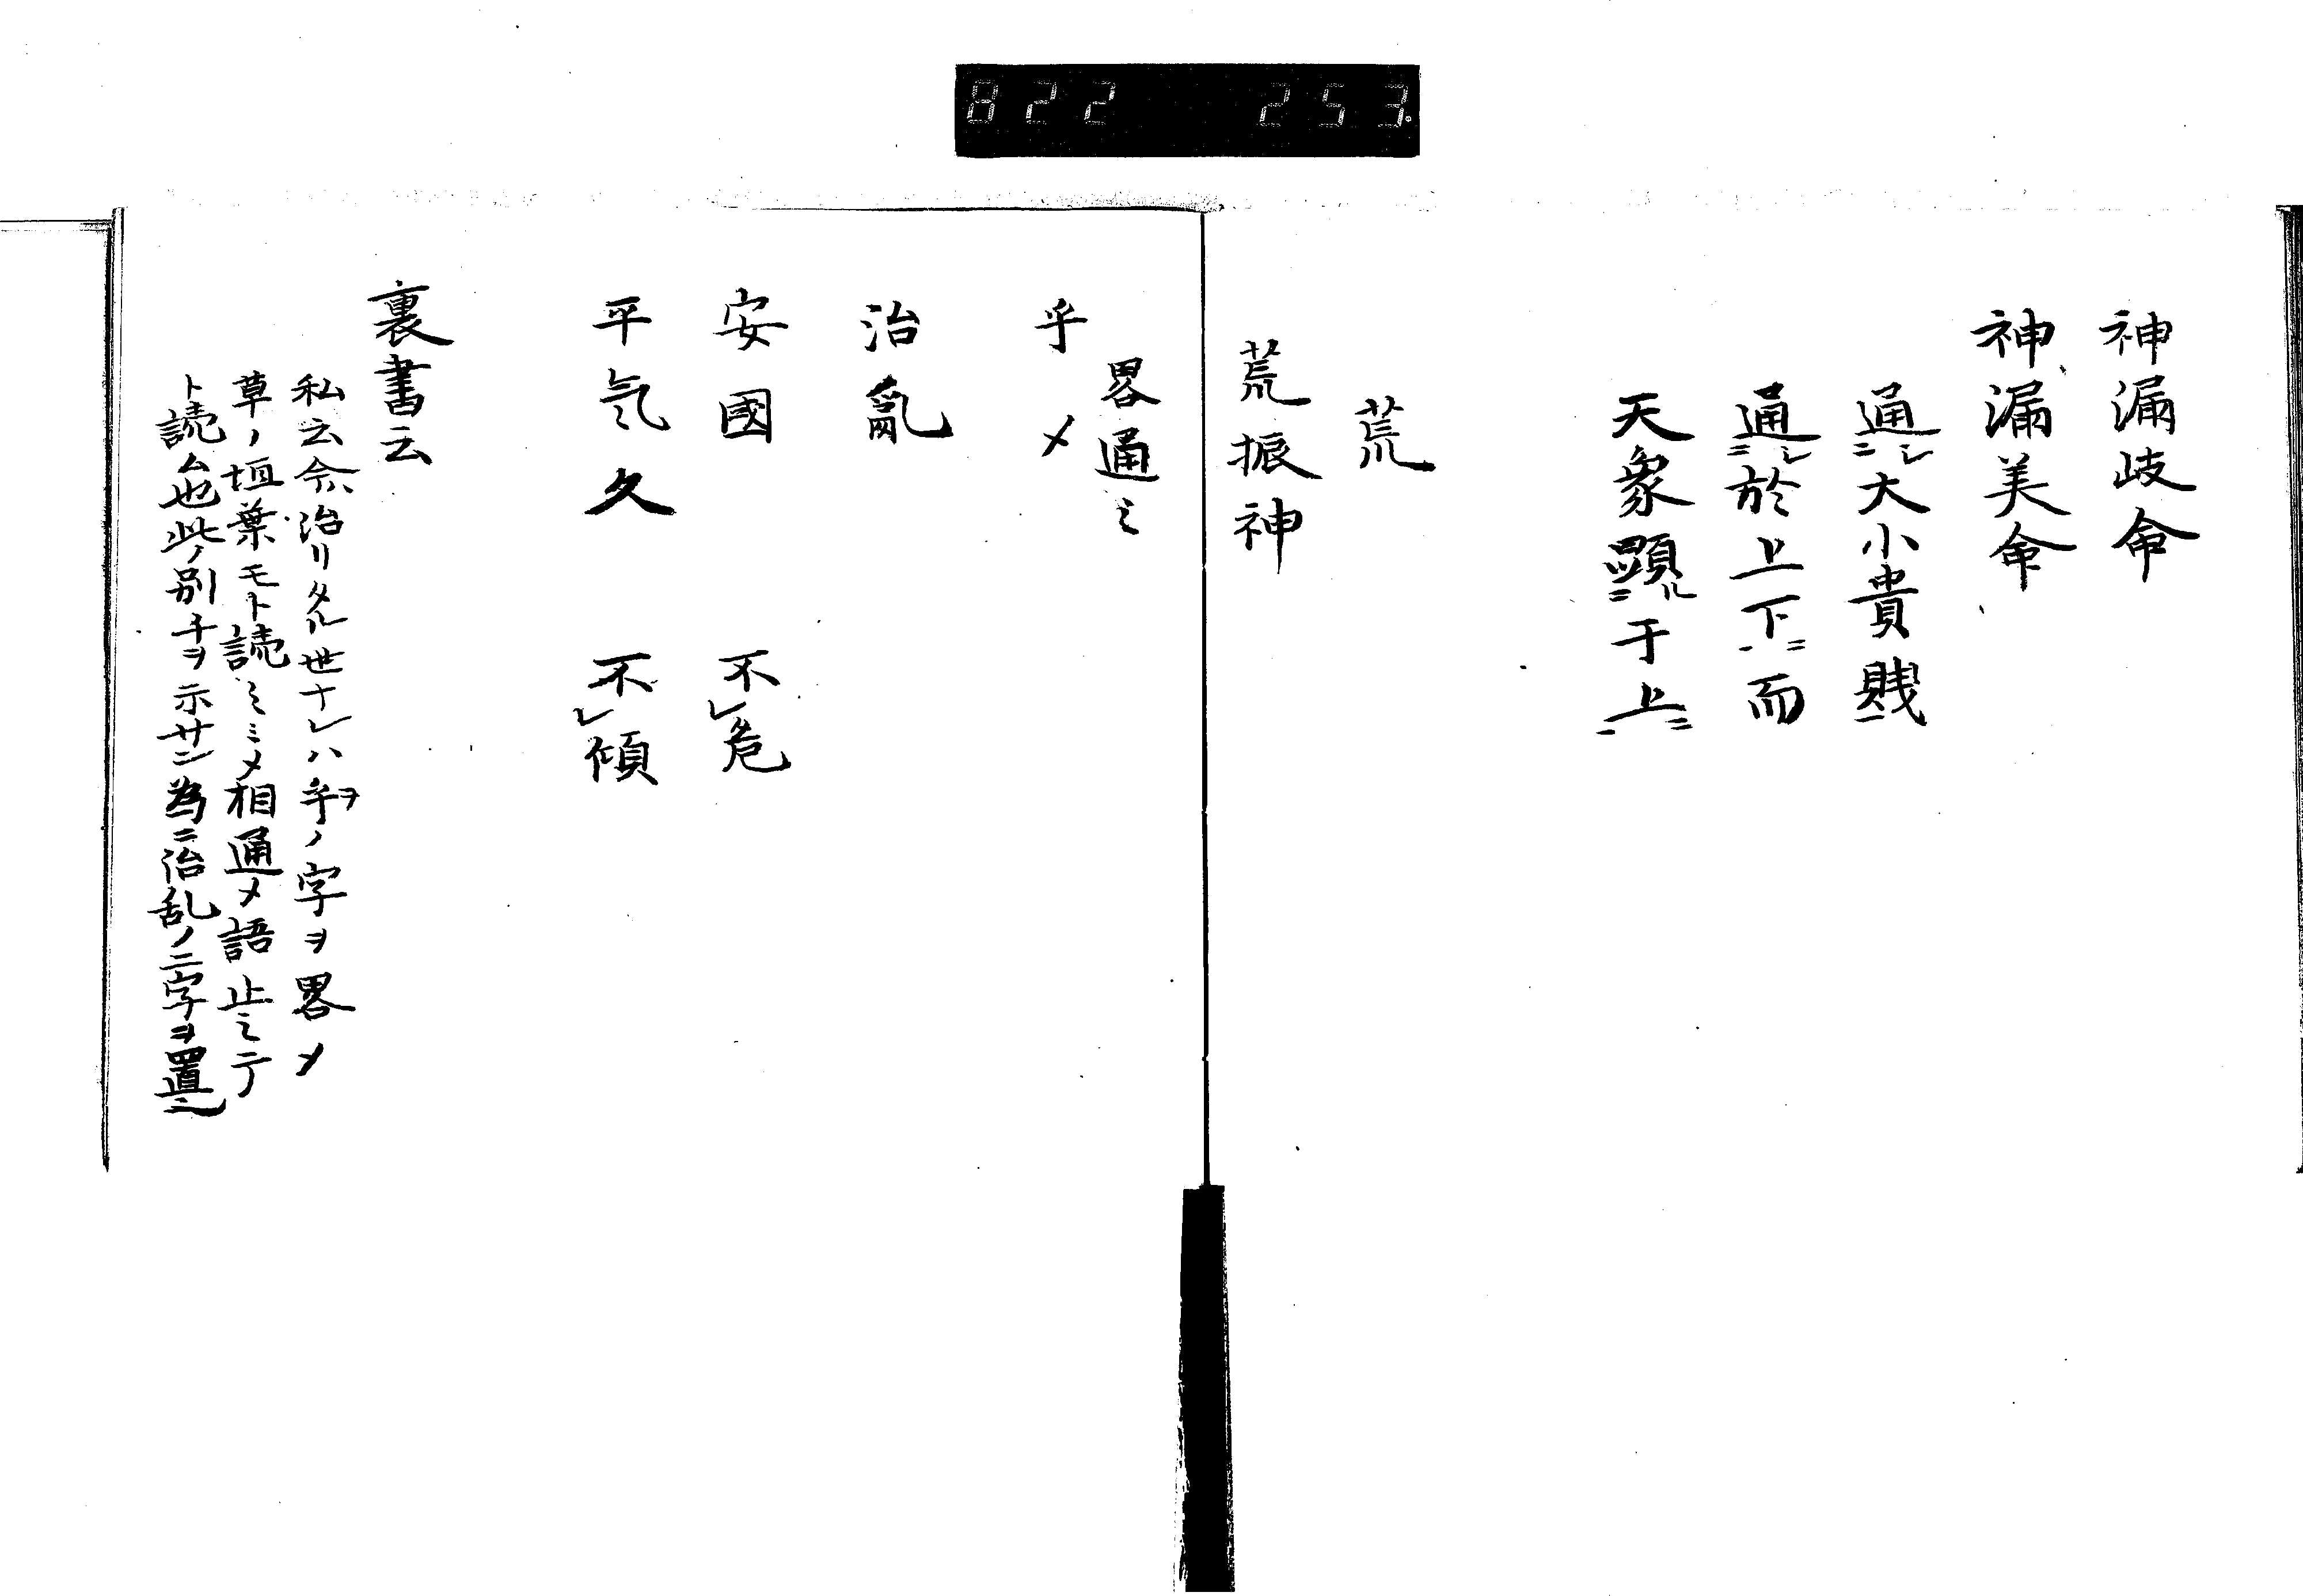 822 253.
神漏岐命
神漏美命
通ニレ大小貴賤ニ
通ニレ於上下ニ而
天象顕ニル于上ニ
荒
荒振神
畧通ミ
乎〆
治亂
安國 不レ危
平気久 不レ傾
裏書云
私云今ハ治リタル世ナレハ乎ヲノ字ヲ畧〆
草ノ垣葉モト読ミミ〆相通〆語止ミテ
ト読ム也此ノ別チヲ示サン為ニ治乱ノ二字ヲ置ニ